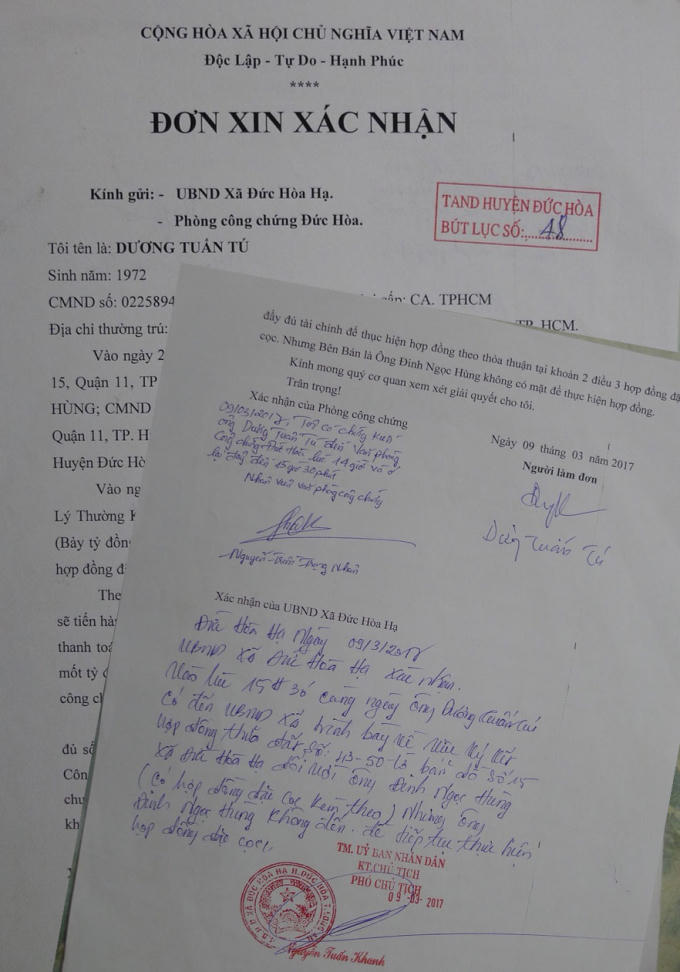 CỘNG HÒA XÃ HỘI CHỦ NGHĨA VIỆT NAM
Độc Lập - Tự Do - Hạnh Phúc
****
ĐƠN XIN XÁC NHẬN
Kính gửi: - UBND Xã Đức Hòa Hạ.
- Phòng công chứng Đức Hòa.
TAND HUYỆN ĐỨC HÒA
BÚT LỤC SỐ: 48
Tôi tên là: DƯƠNG TUẤN TÚ
Sinh năm: 1972
CMND số: 0225894
cấp: CA. TPHCM
Địa chỉ thường trú:
TP. HCM.
Vào ngày 2
15, Quận 11, TP
HÙNG; CMND
Quận 11, TP. H
Huyện Đức Hò
Vào ng
Lý Thường K
(Bảy tỷ đồn
hợp đồng đ
The
sẽ tiến hàn
thanh toá
mốt tỷ đ
công ch
đủ số
Côn
chu
kh
đầy đủ tài chính để thực hiện hợp đồng theo thỏa thuận tại khoản 2 điều 3 hợp đồng đặ
cọc. Nhưng Bên Bán là Ông Đinh Ngọc Hùng không có mặt để thực hiện hợp đồng.
Kính mong quý cơ quan xem xét giải quyết cho tôi.
Trân trọng!
Xác nhận của Phòng công chứng
09/03/2017, Tôi có chứng kiến
ông Dương Tuấn Tú đến văn phòng
công chứng Đức Hòa lúc 14 giờ và ở
lại đây đến 15 giờ 30 phút
Nhân viên văn phòng công chứng
Nguyễn Trần Trọng Nhân
Ngày 09 tháng 03 năm 2017
Người làm đơn
Dương Tuấn Tú
Xác nhận của UBND Xã Đức Hòa Hạ
Đức Hòa Hạ ngày 09/3/2017
UBND xã Đức Hòa Hạ xác nhận.
Vào lúc 15H30 cùng ngày ông Dương Tuấn Tú
có đến UBND xã trình bày về việc ký kết
hợp đồng thửa đất số: 113-50-13 bản đồ số 15
xã Đức Hòa Hạ đối với ông Đinh Ngọc Hùng
(có hợp đồng đặt cọc kèm theo) nhưng ông
Đinh Ngọc Hùng không đến. để tiếp tục thực hiện
hợp đồng đặt cọc.
TM. UỶ BAN NHÂN DÂN
KT.CHỦ TỊCH
PHÓ CHỦ TỊCH
09 -03- 2017
Nguyễn Tuấn Khanh